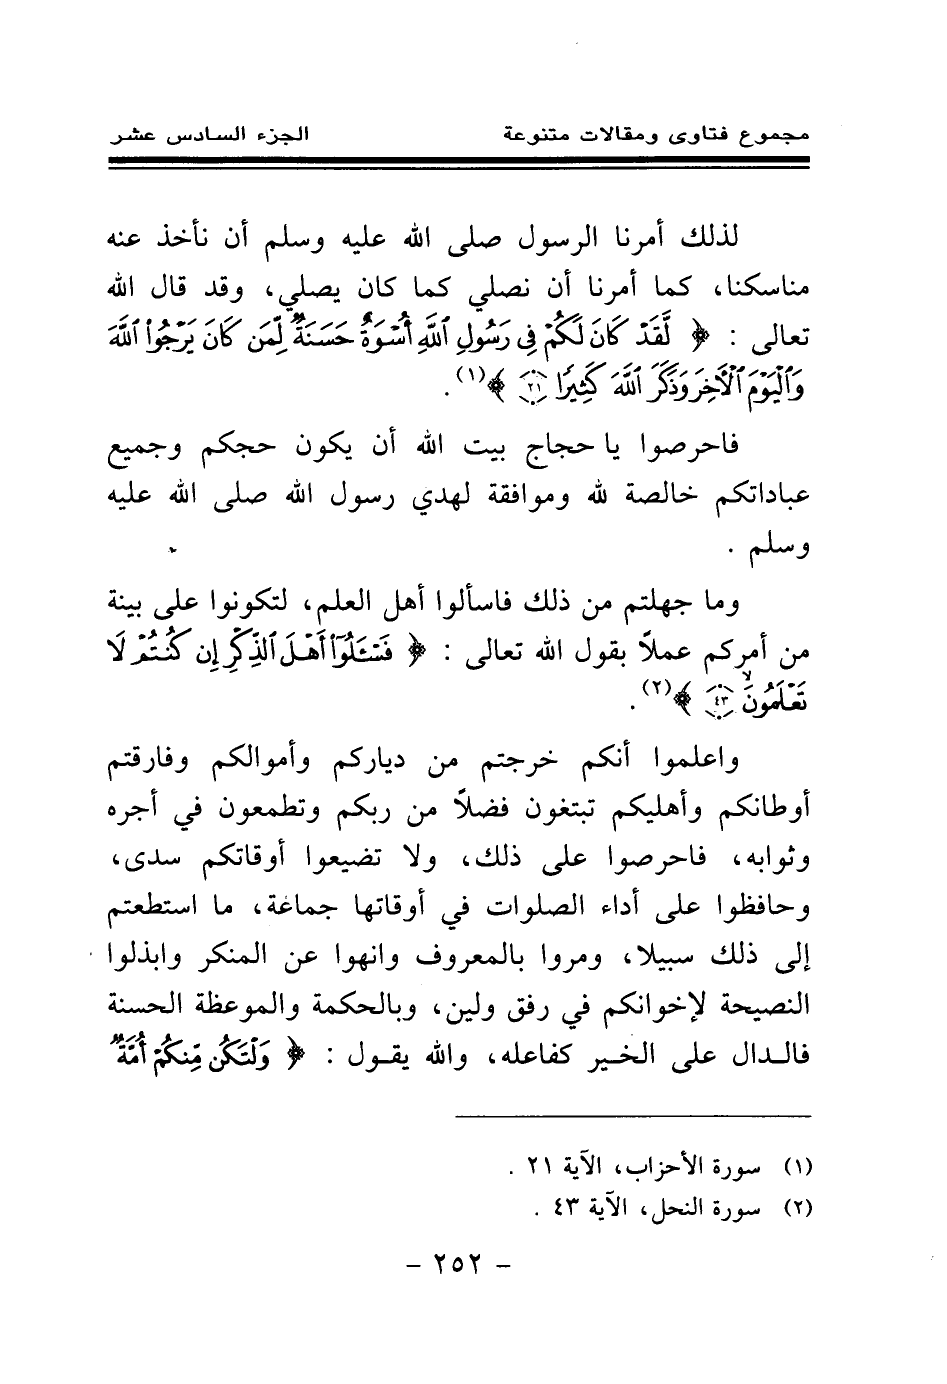 مجموع فتاوى ومقالات متنوعة الجزء السادس عشر
لذلك أمرنا الرسول صلى الله عليه وسلم أن نأخذ عنه
مناسكنا، كما أمرنا أن نصلي كما كان يصلي، وقد قال الله
تعالى : ﴿ لَّقَدْ كَانَ لَكُمْ فِي رَسُولِ ٱللَّهِ أُسْوَةٌ حَسَنَةٌ لِّمَن كَانَ يَرْجُوا۟ ٱللَّهَ
وَٱلْيَوْمَ ٱلْءَاخِرَ وَذَكَرَ ٱللَّهَ كَثِيرًا ٢١ ﴾(١) .
فاحرصوا يا حجاج بيت الله أن يكون حجكم وجميع
عباداتكم خالصة لله وموافقة لهدي رسول الله صلى الله عليه
وسلم .
وما جهلتم من ذلك فاسألوا أهل العلم، لتكونوا على بينة
من أمركم عملاً بقول الله تعالى : ﴿ فَسْـَٔلُوٓا۟ أَهْلَ ٱلذِّكْرِ إِن كُنتُمْ لَا
تَعْلَمُونَ ٤٣ ﴾(٢) .
واعلموا أنكم خرجتم من دياركم وأموالكم وفارقتم
أوطانكم وأهليكم تبتغون فضلاً من ربكم وتطمعون في أجره
وثوابه، فاحرصوا على ذلك، ولا تضيعوا أوقاتكم سدى،
وحافظوا على أداء الصلوات في أوقاتها جماعة، ما استطعتم
إلى ذلك سبيلا، ومروا بالمعروف وانهوا عن المنكر وابذلوا
النصيحة لإخوانكم في رفق ولين، وبالحكمة والموعظة الحسنة
فالدال على الخير كفاعله، والله يقول : ﴿ وَلْتَكُن مِّنكُمْ أُمَّةٌ
(١) سورة الأحزاب، الآية ٢١ .
(٢) سورة النحل، الآية ٤٣ .
- ٢٥٢ -